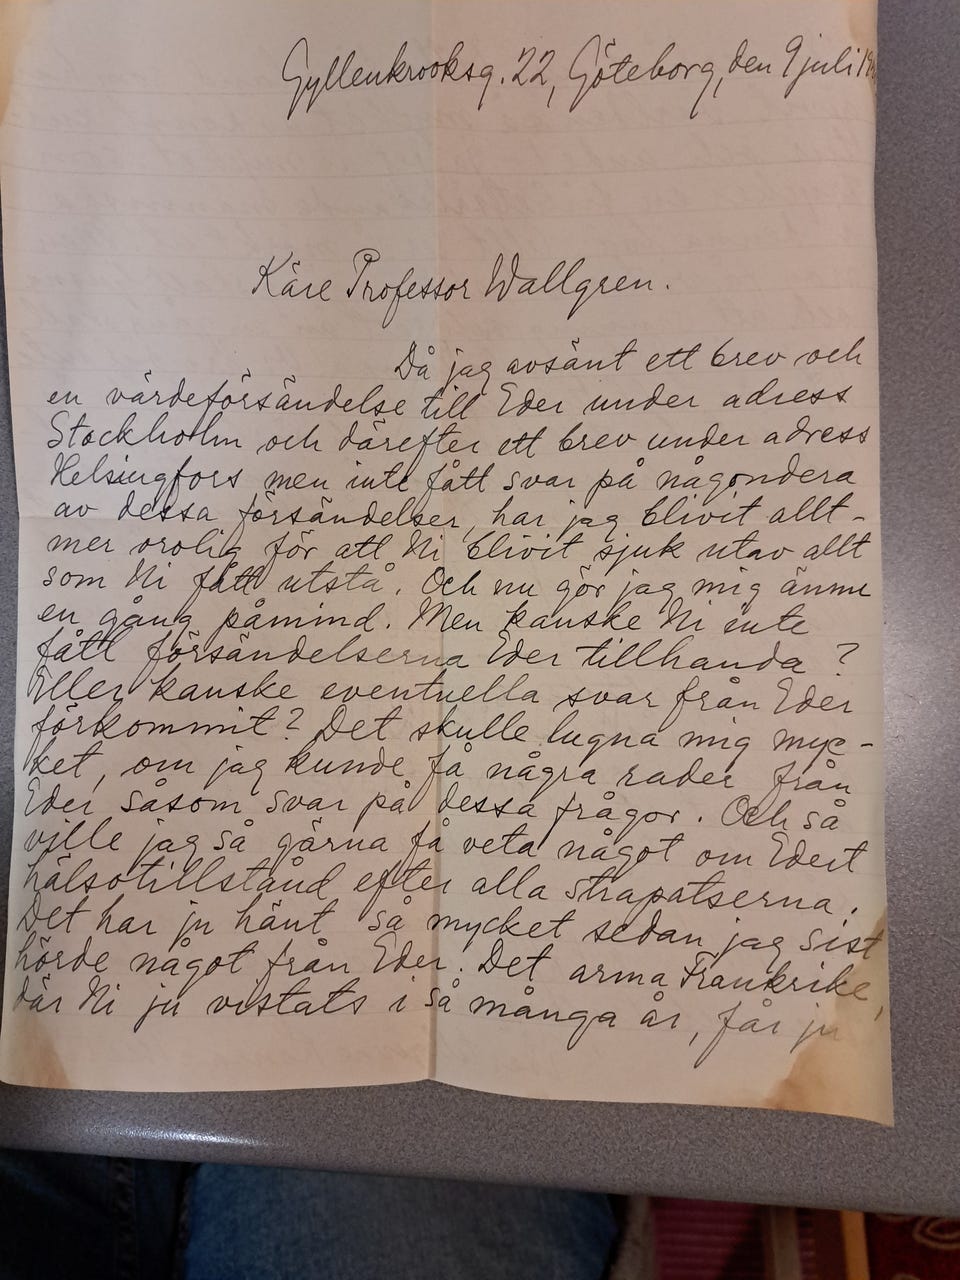 Gyllenkrooksg. 22, Göteborg, den 9 juli 19
Käre Professor Wallgren.
Då jag avsänt ett brev och
en värdeförsändelse till Eder under adress
Stockholm och därefter ett brev under adress
Helsingfors men inte fått svar på någondera
av dessa försändelser, har jag blivit allt-
mer orolig för att Ni blivit sjuk utav allt
som Ni fått utstå. Och nu gör jag mig ännu
en gång påmind. Men kanske Ni inte
fått försändelserna Eder tillhanda ?
Eller kanske eventuella svar från Eder
förkommit? Det skulle lugna mig myc-
ket, om jag kunde få några rader från
Eder såsom svar på dessa frågor. Och så
ville jag så gärna få veta något om Edert
hälsotillstånd efter alla strapatserna.
Det har ju hänt så mycket sedan jag sist
hörde något från Eder. Det arma Frankrike,
där Ni ju vistats i så många år, får ju